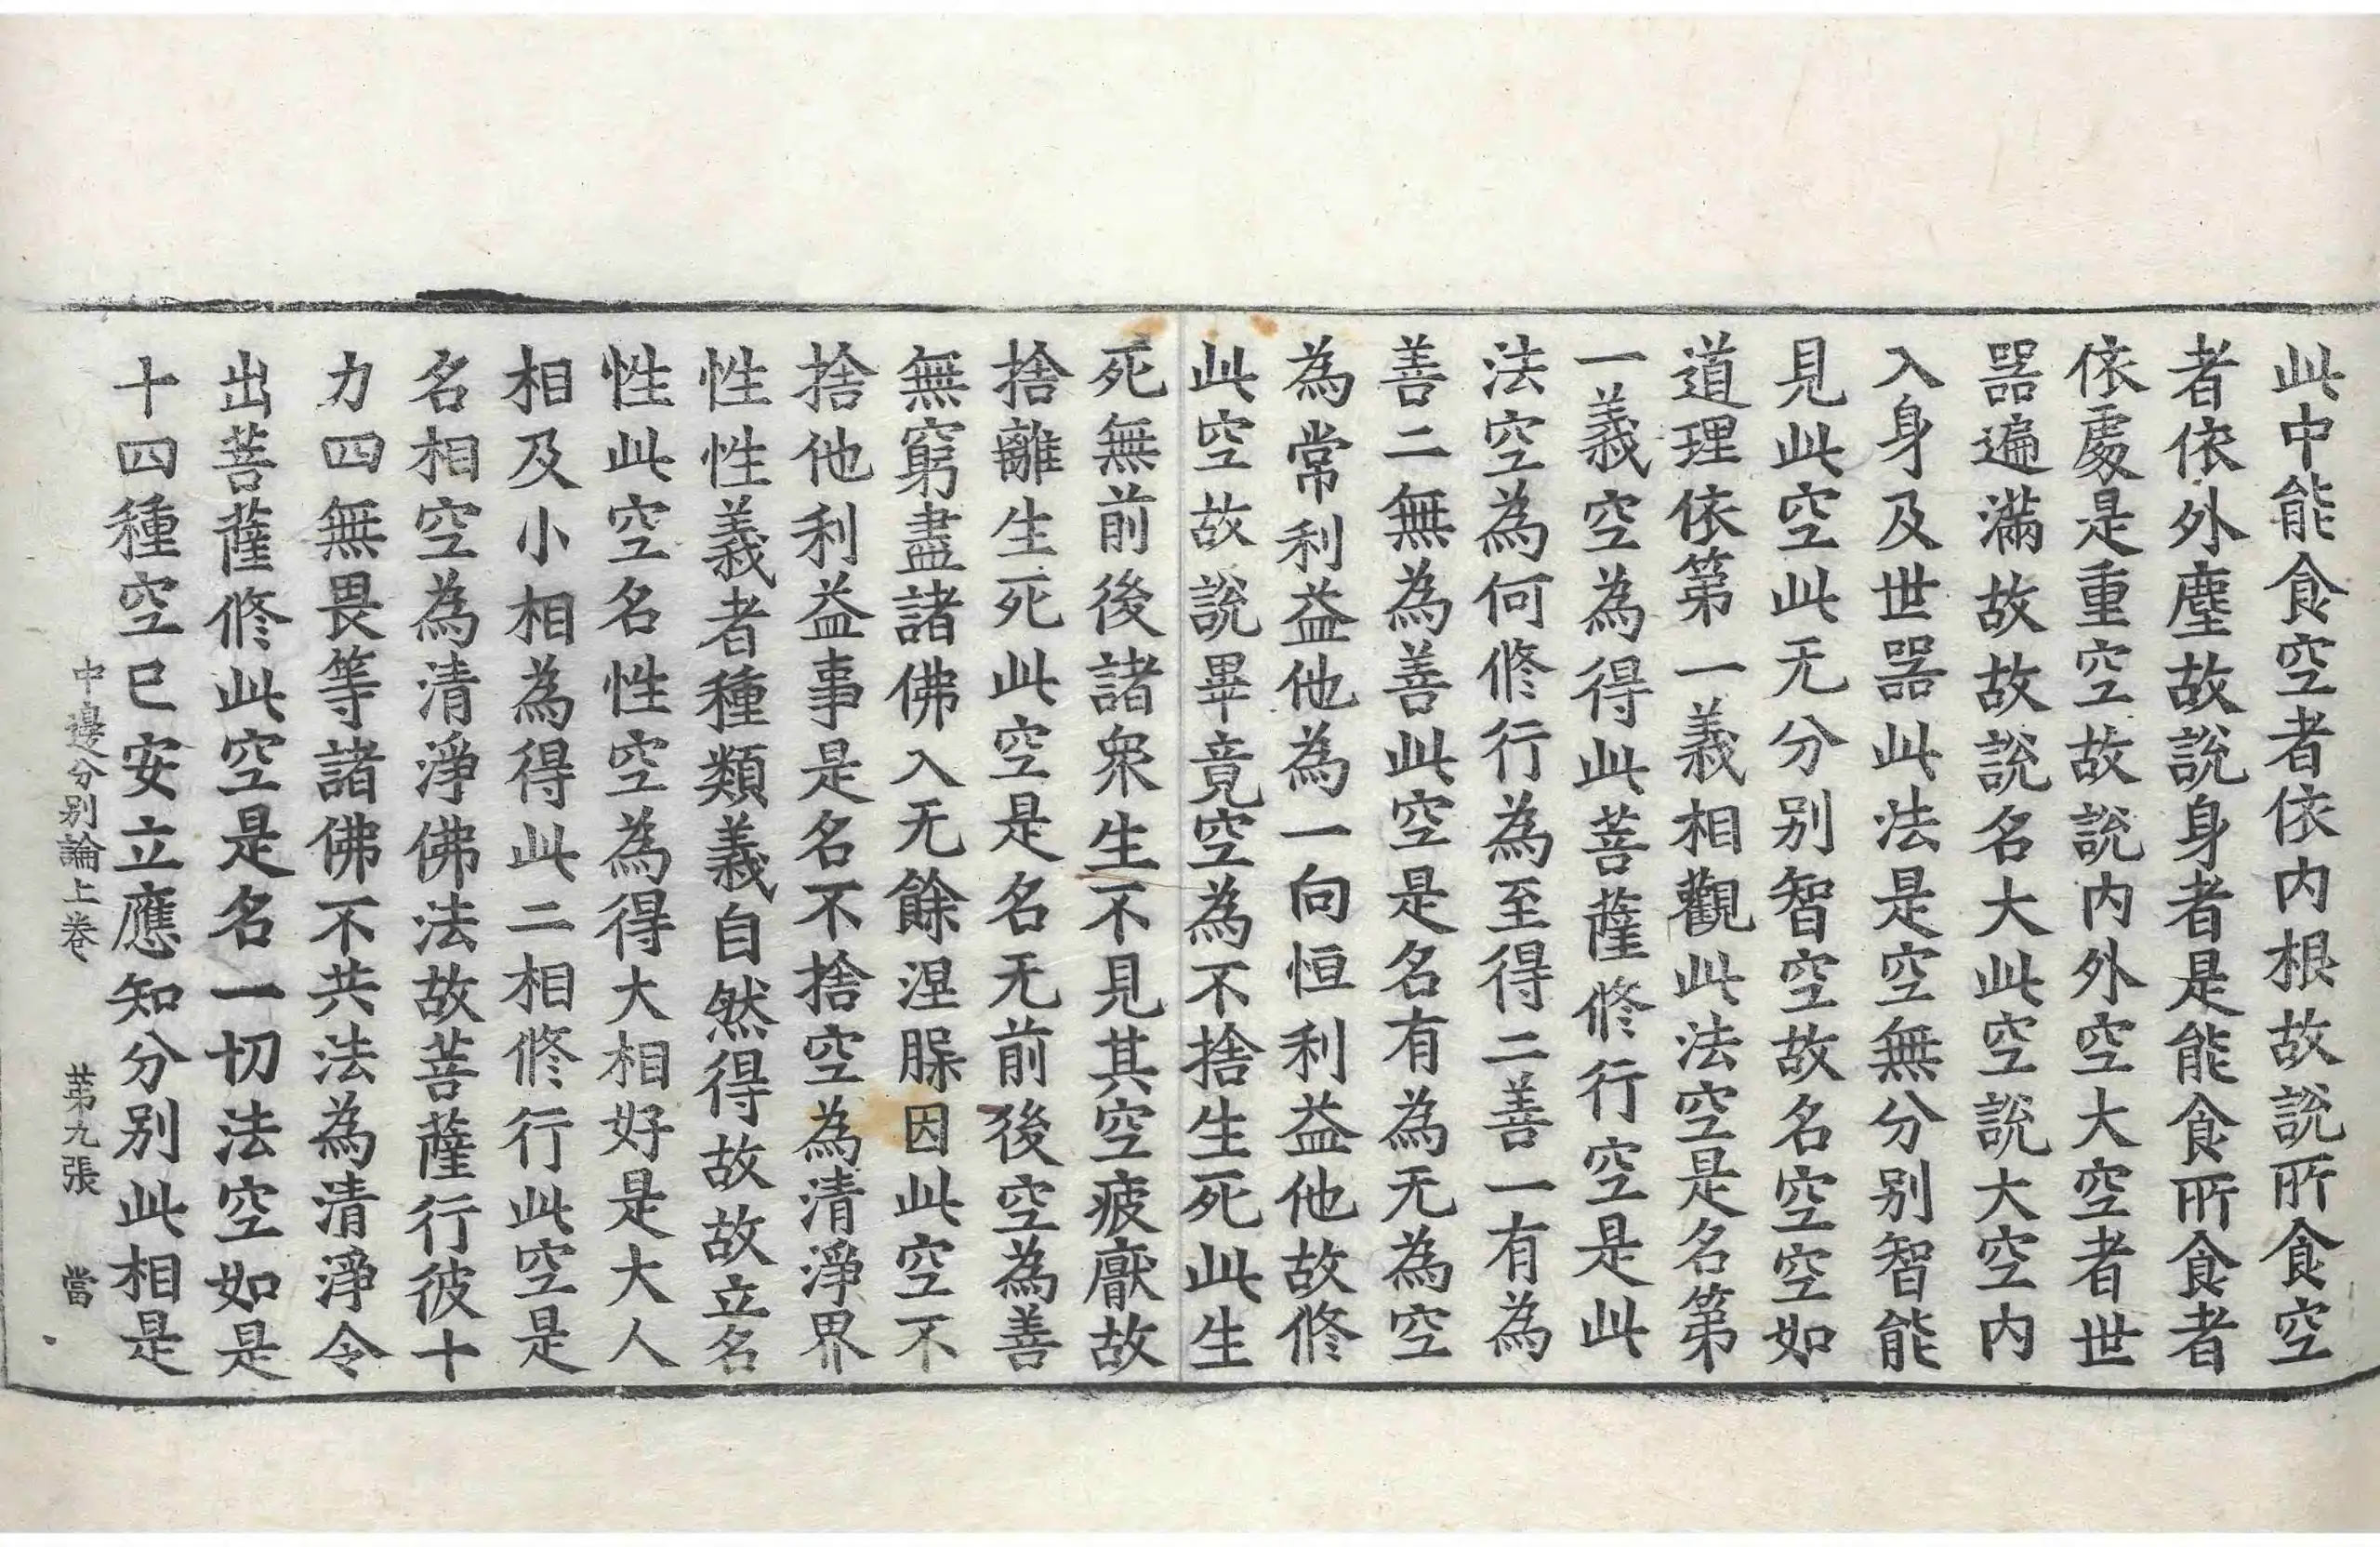 此中能食空者依内根故說所食空
者依外塵故說身者是能食所食者
依處是重空故說内外空大空者世
器遍滿故故說名大此空說大空内
入身及世器此法是空無分别智能
見此空此无分别智空故名空空如
道理依第一義相觀此法空是名第
一義空為得此菩薩修行空是此
法空為何修行為至得二善一有為
善二無為善此空是名有為无為空
為常利益他為一向恒利益他故修
此空故說畢竟空為不捨生死此生
死無前後諸衆生不見其空疲厭故
捨離生死此空是名无前後空為善
無窮盡諸佛入无餘涅槃因此空不
捨他利益事是名不捨空為清淨界
性性義者種類義自然得故故立名
性此空名性空為得大相好是大人
相及小相為得此二相修行此空是
名相空為清淨佛法故菩薩行彼十
力四無畏等諸佛不共法為清淨令
出菩薩修此空是名一切法空如是
十四種空已安立應知分别此相是
中邊分别論上卷 苐九張 當